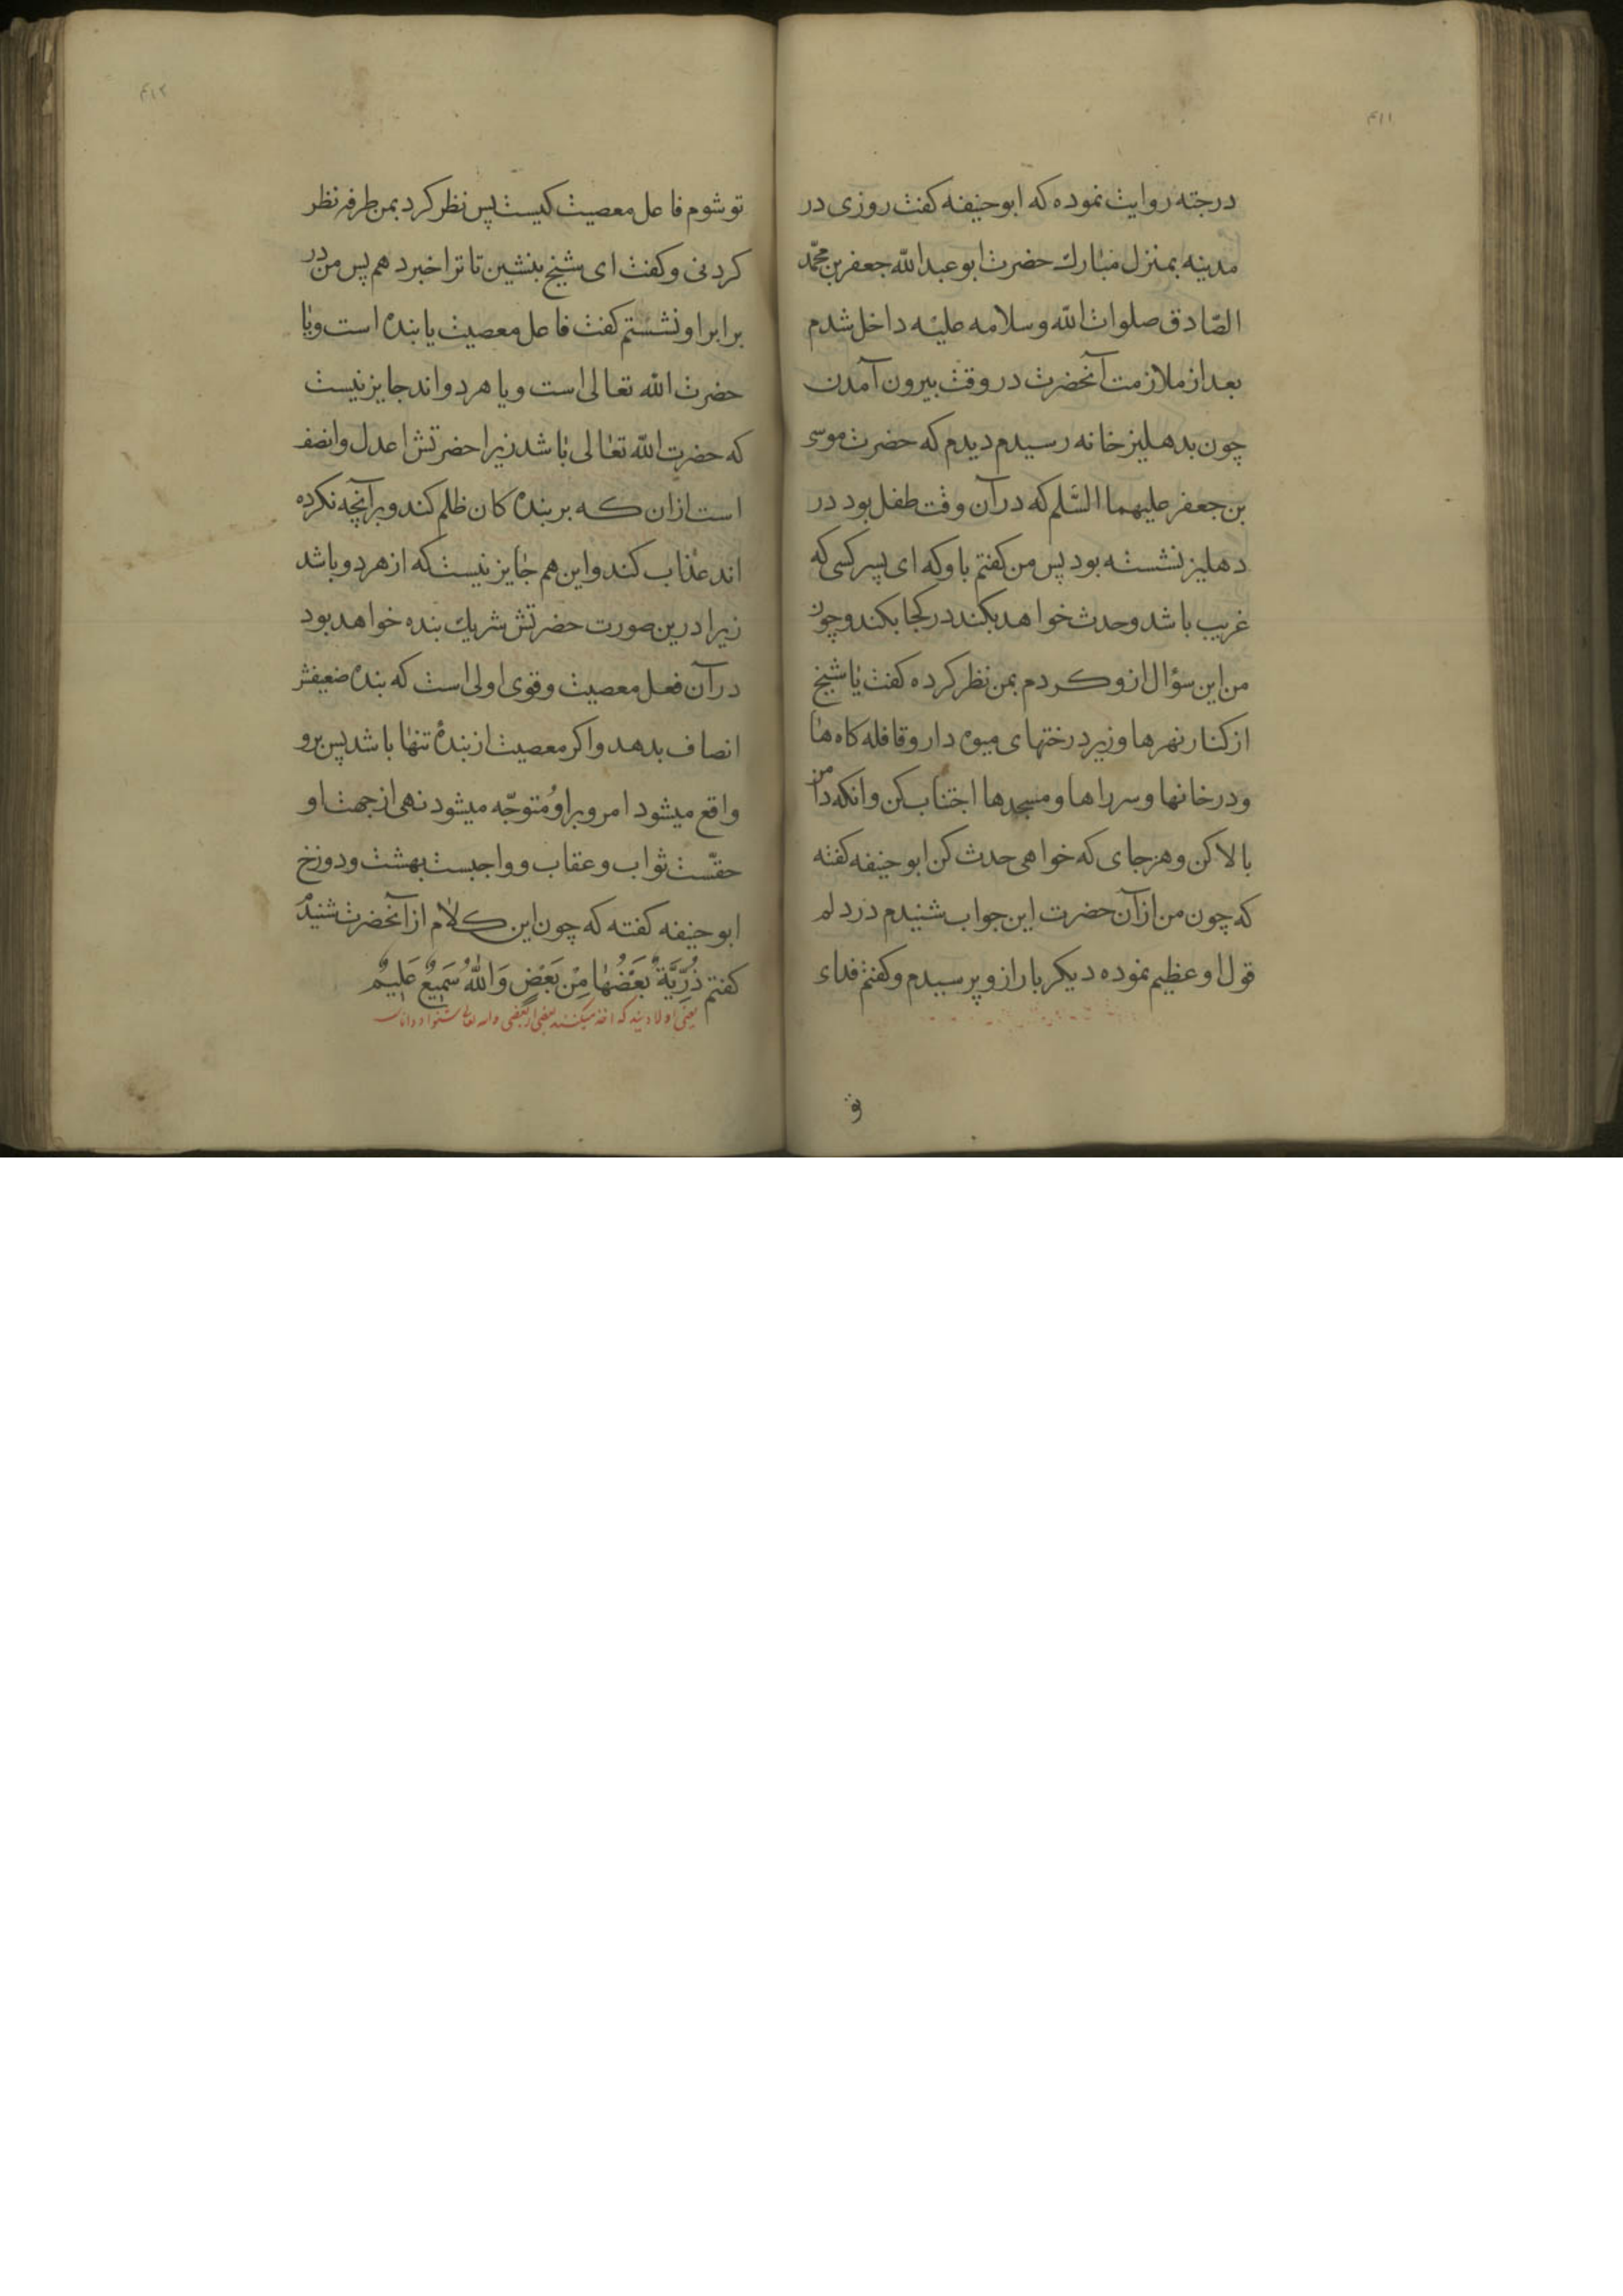 ۴۱۱
درجته روایت نموده که ابوحنیفه کفت روزی در
مدینه بمنزل مبارك حضرت ابوعبدالله جعفر بن محمّد
الصّادق صلوات الله وسلامه علیه داخل شدم
بعد از ملازمت آنحضرت در وقت بیرون آمدن
چون بدهلیز خانه رسیدم دیدم که حضرت موسی
بن جعفر علیهما السّلم که در آن وقت طفل بود در
دهلیز نشسته بود پس من کفتم باو که ای پسر کسی که
غریب باشد وحدث خواهد بکند در کجا بکند وچون
من این سؤال ازو کردم بمن نظر کرده کفت یا شیخ
از کنار نهرها وزیر درختهای میوه دار وقافله کاه ها
ودر خانها وسر راها ومسجدها اجتناب کن وانکه دامن
بالا کن وهر جای که خواهی حدث کن ابوحنیفه کفته
که چون من از آن حضرت این جواب شنیدم در دلم
قول او عظیم نموده دیکر بار ازو پرسیدم وکفتم فدای
تو
۴۱۲
تو شوم فاعل معصیت کیست پس نظر کرد بمن طرفه نظر
کردنی وکفت ای شیخ بنشین تا ترا خبر دهم پس من در
برابر او نشستم کفت فاعل معصیت یا بنده است ویا
حضرت الله تعالی است ویا هر دو اند جایز نیست
که حضرت الله تعالی باشد زیرا حضرتش اعدل وانصف
است ازان که بر بنده کان ظلم کند وبر آنچه نکرده
اند عذاب کند واین هم جایز نیست که از هر دو باشد
زیرا درین صورت حضرتش شریك بنده خواهد بود
در آن فعل معصیت وقوی اولی است که بنده ضعیفش
انصاف بدهد واکر معصیت از بنده تنها باشد پس برو
واقع میشود امر وبر او متوجّه میشود نهی از جهت او
حقّست ثواب وعقاب وواجبست بهشت ودوزخ
ابوحنیفه کفته که چون این کلام از آنحضرت شنیدم
کفتم ذُرِّیَّةً بَعْضُهَا مِنْ بَعْضٍ وَاللهُ سَمِیعٌ عَلِیمٌ
یعنی اولادیند که اخذ میکنند بعضی از بعضی والله تعالی شنوا و داناست